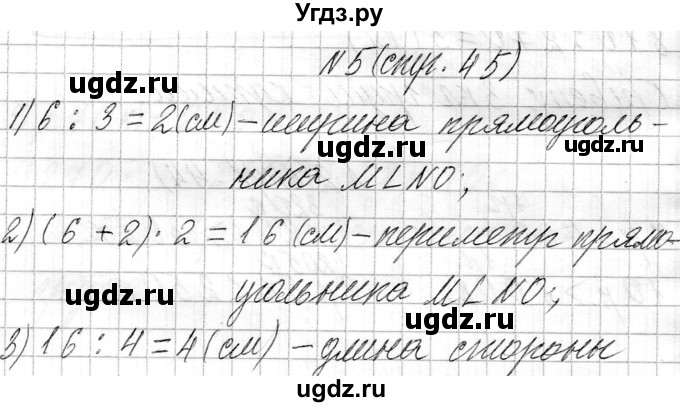 Угдз.ру
N5(стр. 45)
1) 6 : 3 = 2(см) – ширина прямоуголь-
ника MLNO;
2) (6 + 2) · 2 = 16 (см) – периметр прямо-
угольника MLNO;
3) 16 : 4 = 4 (см) – длина стороны
ugdz.ru
ugdz.ru
ugdz.ru
ugdz.ru
ugdz.ru
ugdz.ru
ugdz.ru
ugdz.ru